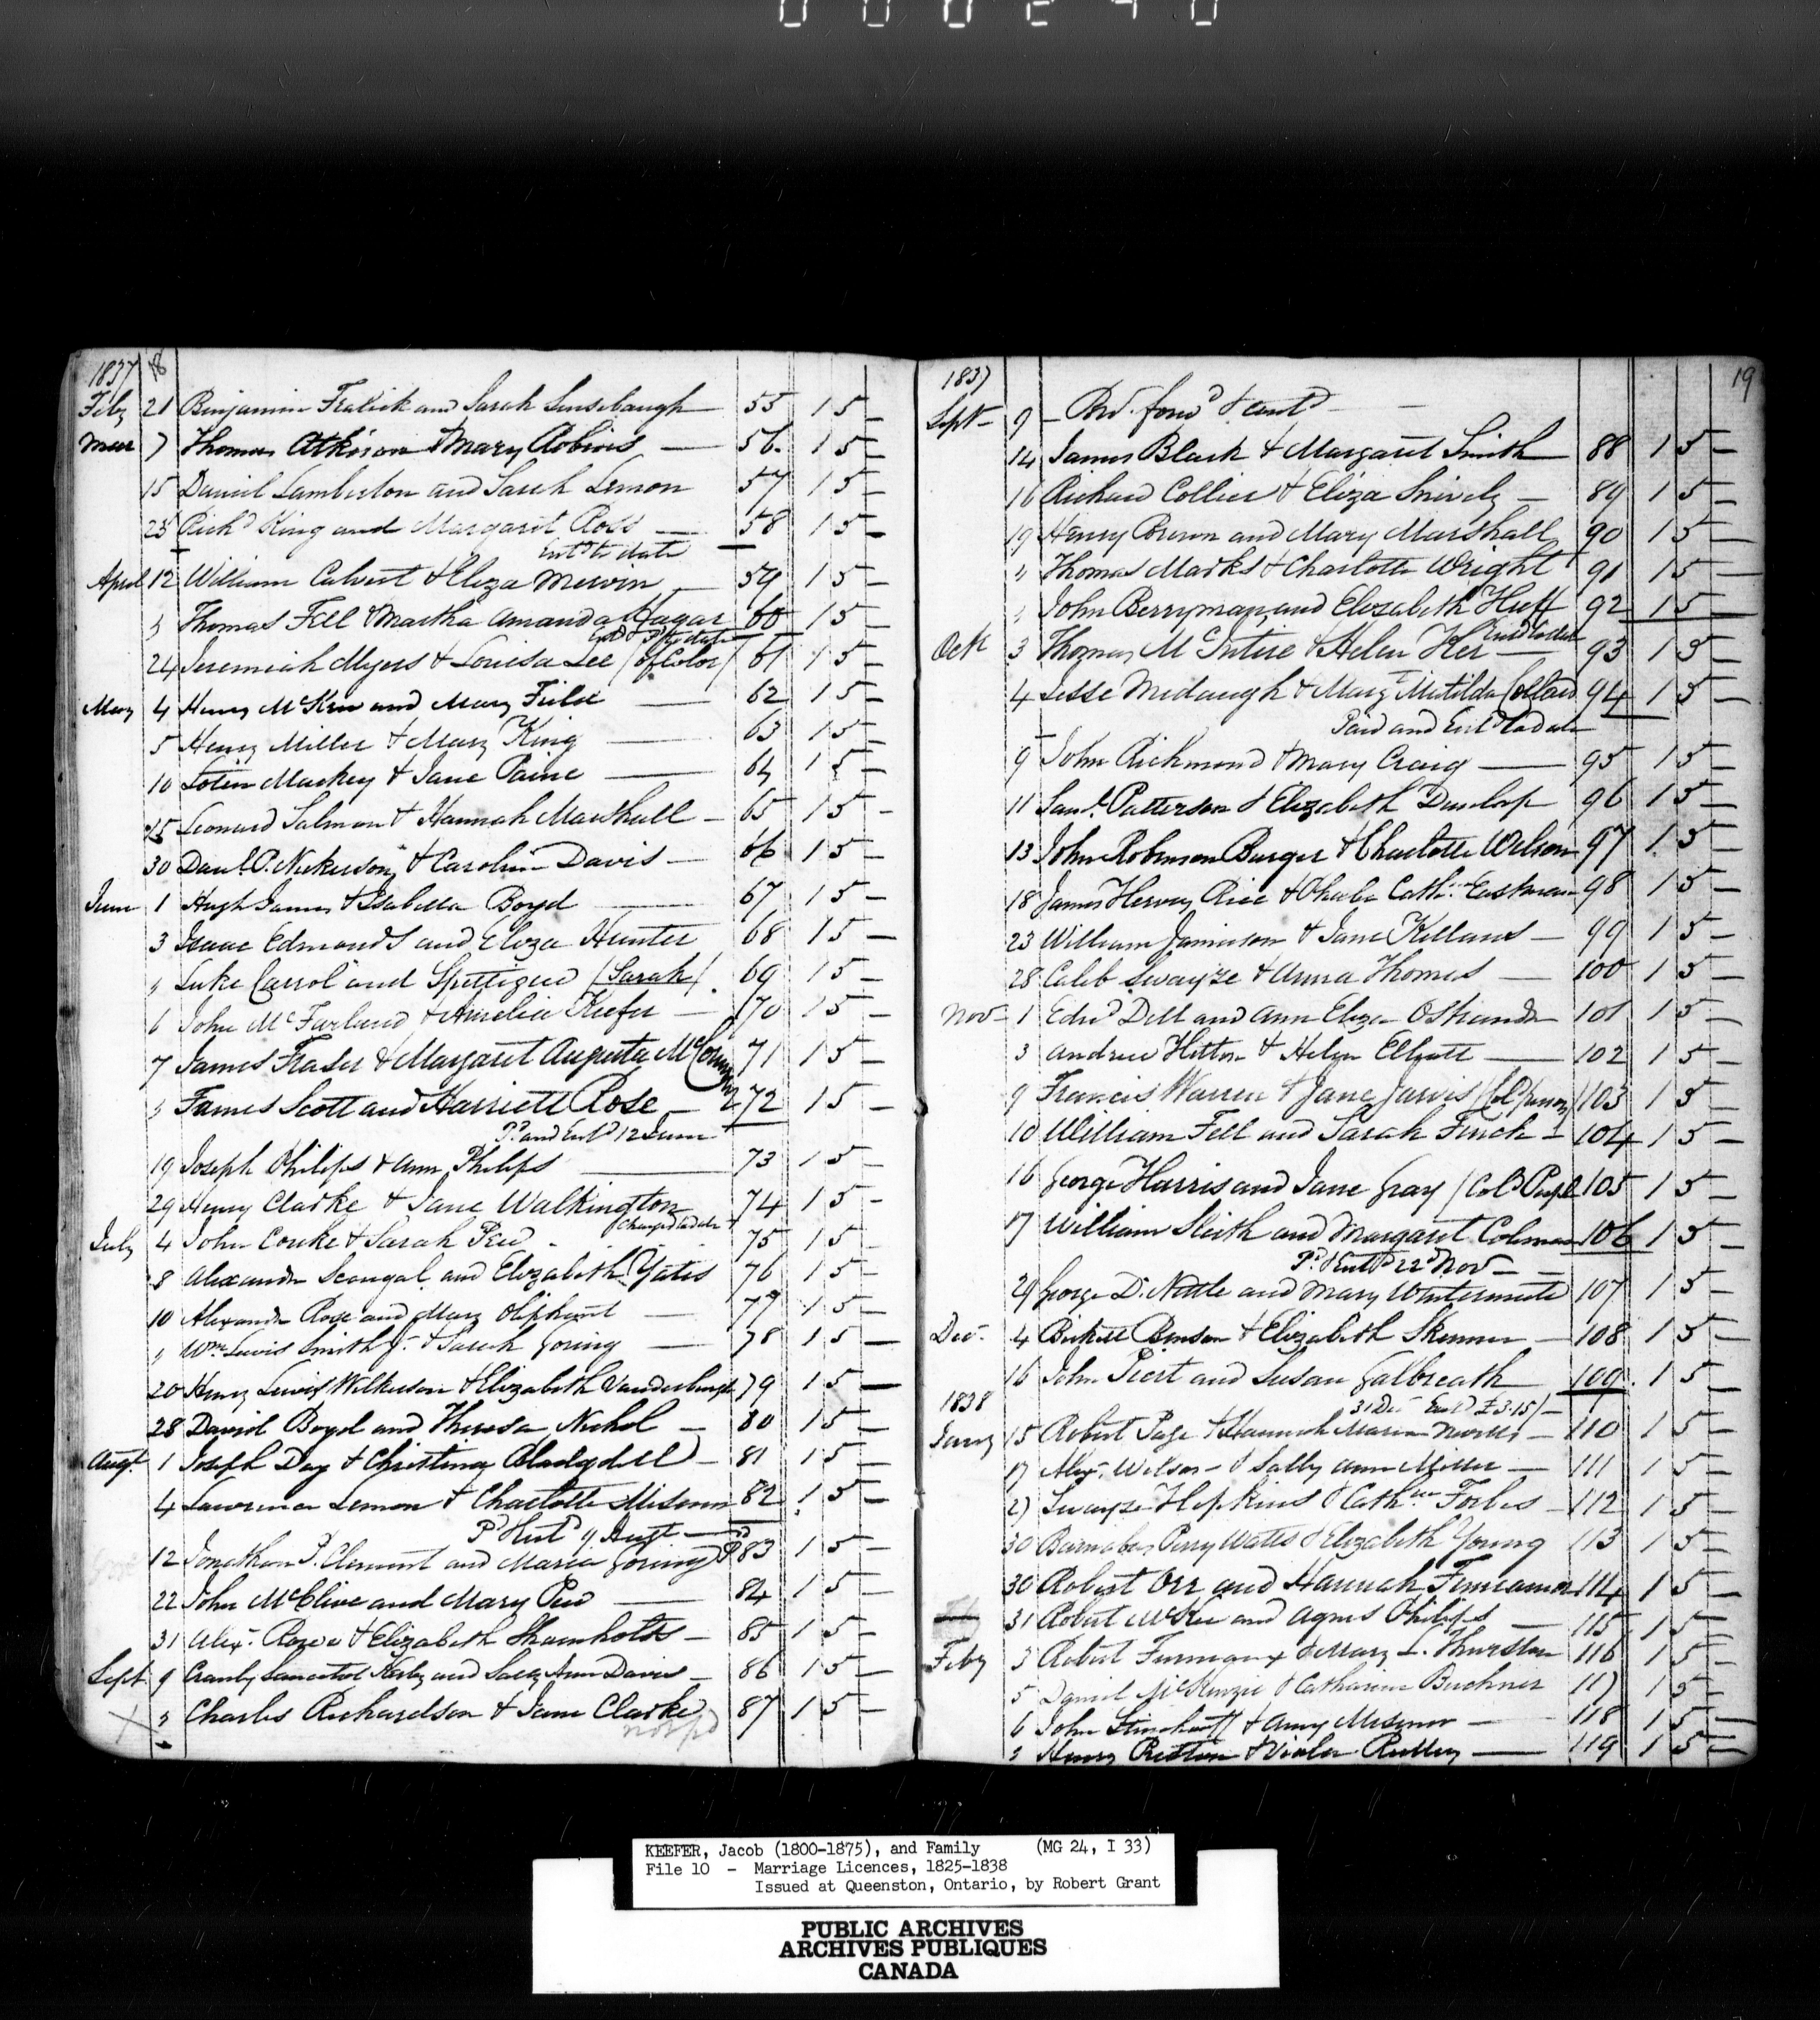 000240
1837 18
Feby 21 Benjamin Fralick and Sarah Sensebaugh 55 1 5 –
Mar 7 Thomas Atkinson & Mary Robins — 56. 1 5 –
15 Daniel Lamberton and Sarah Lemon 57 1 5 –
25 Richd King and Margaret Ross — 58 1 5 –
Entd to date
April 12 William Calvert & Eliza Merwin 59 1 5 –
" Thomas Fell & Martha Amanda Hagar 60 1 5 –
Entd & Pd to date
24 Jeremiah Myers & Louisa Lee (of Color) 61 1 5 –
May 4 Henry McKem and Mary Field — 62 1 5 –
5 Henry Miller & Mary King — 63 1 5 –
10 Loten Mackey & Jane Paine — 64 1 5 –
25 Leonard Salmon & Hannah Marshall – 65 1 5 –
30 Danl. P. Nickerson & Caroline Davis – 66 1 5 –
June 1 Hugh James & Isabella Boyd — 67 1 5 –
3 Isaac Edmonds and Eliza Hunter 68 1 5 –
" Luke Carrol and (Sarah) 69 1 5 –
6 John McFarland & Amelia Keefer – 70 1 5 –
7 James Fraser & Margaret Augusta 71 1 5 –
" James Scott and Harriett Rose – 272 1 5 –
Pd. and Entd 12 June
19 Joseph Philips & Ann Philips — 73 1 5 –
29 Henry Clarke & Jane Walkington 74 1 5 –
Charged to date
July 4 John Couke & Sarah Pew – 75 1 5 –
8 Alexander Scougal and Elizabeth Yates 76 1 5 –
10 Alexander Rose and Mary Oliphant — 77 1 5 –
" Wm Lewis Smith Jr. & Sarah Goring — 78 1 5 –
20 Henry Lewis Wilkerson & Elizabeth Vanderburgh 79 1 5 –
28 David Boyd and Theresa Nichol – 80 1 5 –
Augt. 1 Joseph Day & Christina Bladgdell – 81 1 5 –
4 Lawrence Lemon & Charlotte Misener 82 1 5 –
Pd & Entd 11 Augt
12 Jonathan P. Clement and Maria Goring Pd 83 1 5 –
22 John McClive and Mary Pew — 84 1 5 –
31 Alexr. Rose & Elizabeth – 85 1 5 –
Sept 9 Kerby and Ann Davis – 86 1 5 –
X " Charles Richardson & Jane Clarke 87 1 5 –
not pd
1837 19
Sept – 9 – Brd. forwd & contd – –
14 James Black & Margaret Smith 88 1 5 –
16 Richard Collier & Eliza Snively – 89 1 5 –
19 Henry Brown and Mary Marshall 90 1 5 –
" Thomas Marks & Charlotte Wright 91 1 5 –
" John Berryman and Elizabeth Huff 92 1 5 –
Entd to date
Oct 3 Thomas McIntire & Helen Ker — 93 1 5 –
4 Jesse Midaugh & Mary Matilda Collard 94 1 5 –
Paid and Entd to date
9 John Richmond & Mary Craig — 95 1 5 –
11 Saml. Patterson & Elizabeth Dunlop 96 1 5 –
13 John Robinson Burger & Charlotte Wilson 97 1 5 –
18 James Hervey Rice & Phebe Cathn. Eastman 98 1 5 –
23 William Jamieson & Jane Kelland – 99 1 5 –
28 Caleb Swayze & Anna Thomas — 100 1 5 –
Nov – 1 Edwd Dell and Ann Eliza Ostrander 101 1 5 –
3 Andrew Hitton & Helen Elliott — 102 1 5 –
9 Francis Warren & Jane Jarvis (Cold persons) 103 1 5 –
10 William Fell and Sarah Finch – 104 1 5 –
16 George Harris and Jane Gray (Cold Peopl 105 1 5 –
17 William Sleith and Margaret Colman 106 1 5 –
Pd. & Entd 22d Nov – –
29 George D. Nettle and Mary Wintermute 107 1 5 –
Dec. 4 Birkett Benson & Elizabeth Skinner – 108 1 5 –
16 John Piert and Susan Galbreath 109 1 5 –
31 Dec Entd £3.15/–
1838
Jany 15 Robert Page & Hannah Maria – 110 1 5 –
17 Alexr. Wilson – & Sally Ann Miller – 111 1 5 –
27 Swayze Hopkins & Cathne Forbes – 112 1 5 –
30 Barnabas Perry Watts & Elizabeth Young 113 1 5 –
30 Robert Orr and Hannah 114 1 5 –
31 Robert McKee and Agnes Philips – 115 1 5 –
Feby 3 Robert Furman & Mary L. Thurston 116 1 5 –
5 Daniel McKenzie & Catharine Buchner 117 1 5 –
6 John & Amy Misener – 118 1 5 –
" Henry Preston & — 119 1 5 –
KEEFER, Jacob (1800-1875), and Family (MG 24, I 33)
File 10 - Marriage Licences, 1825-1838
Issued at Queenston, Ontario, by Robert Grant
PUBLIC ARCHIVES
ARCHIVES PUBLIQUES
CANADA